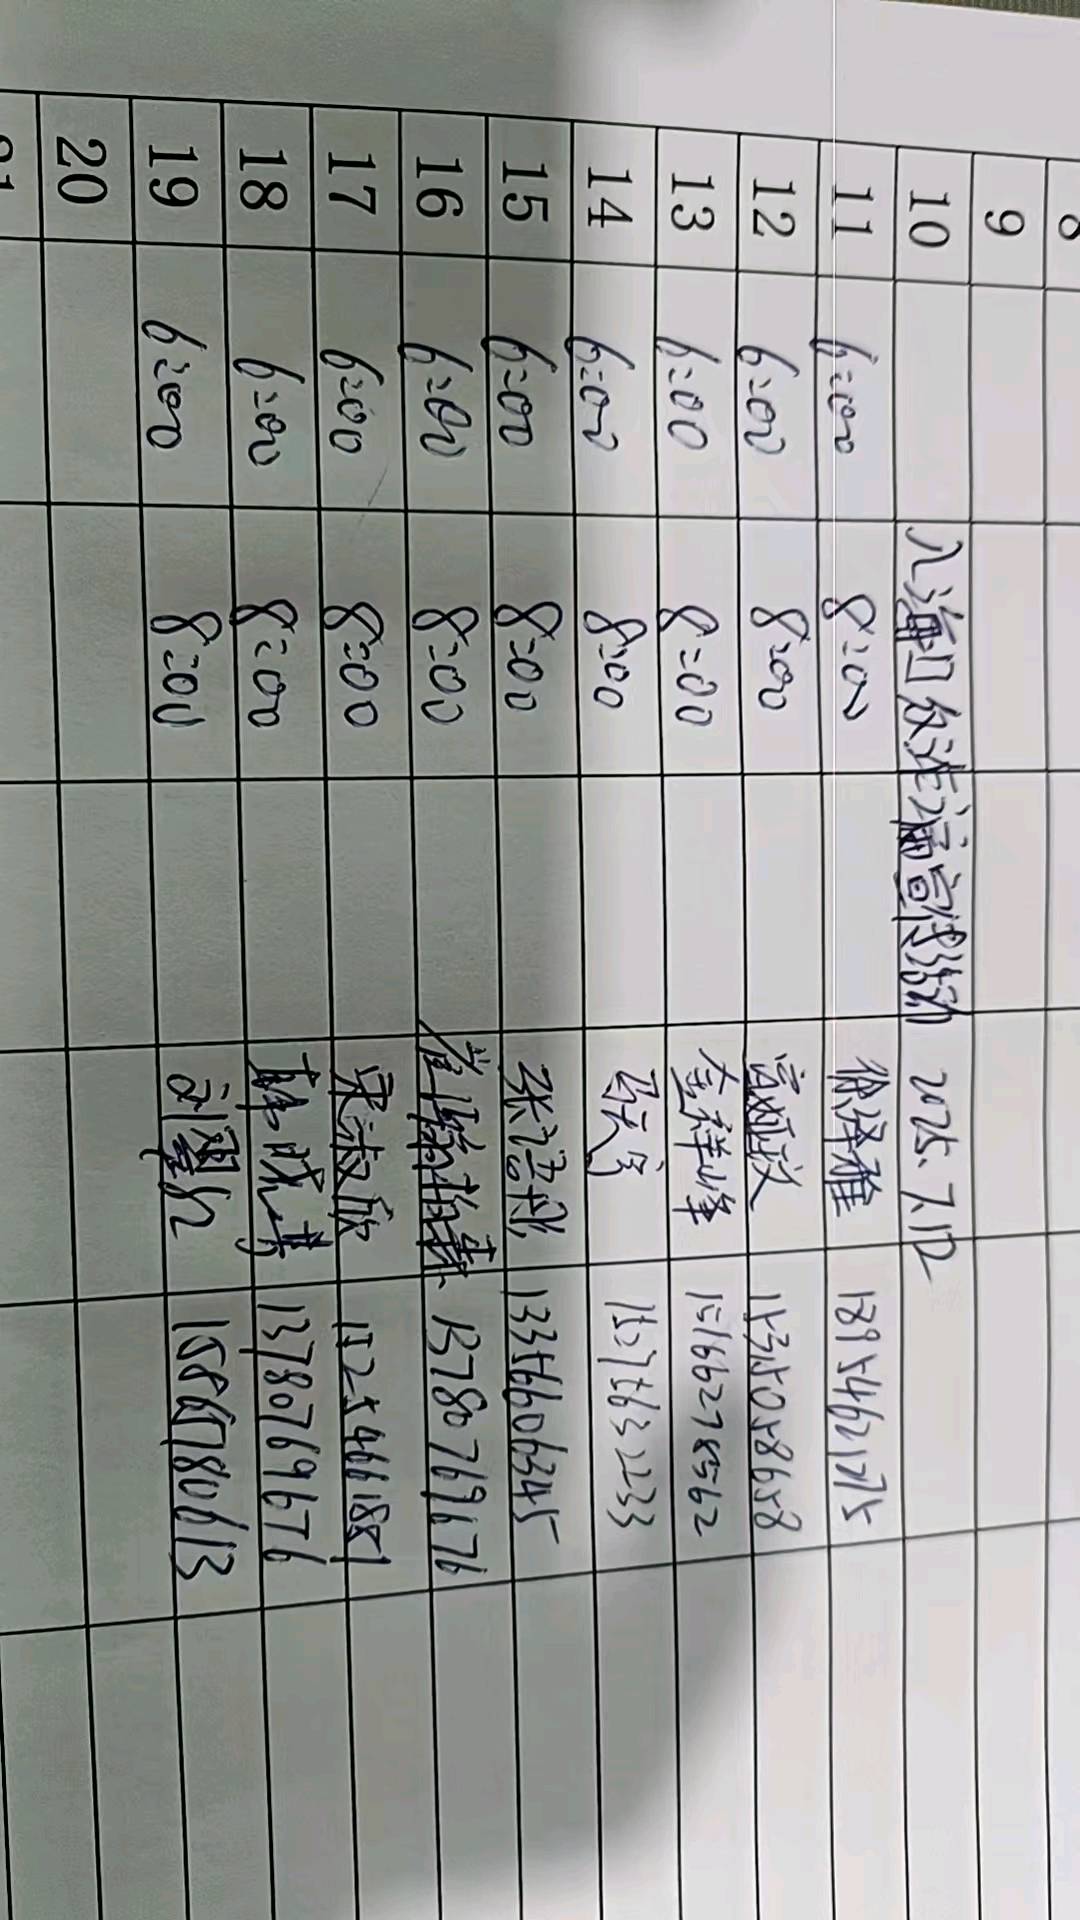 8
9
10 入海口反诈宣传活动 2025.7.12
11 6:00 8:00 徐泽雅 18954621275
12 6:00 8:00 1535058658
13 6:00 8:00 金祥峰 15166278562
14 6:00 8:00 15275632233
15 6:00 8:00 13356606345
16 6:00 8:00 13780769676
17 6:00 8:00 宋志欣 15254661851
18 6:00 8:00 韩成寿 13780769676
19 6:00 8:00 15866780613
20
21